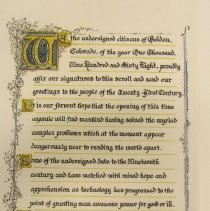 We the undersigned citizens of Golden,
Colorado, of the year One Thousand,
Nine Hundred and Sixty Eight, proudly
affix our signatures to this scroll and send our
greetings to the people of the Twenty-First Century.
It is our fervent hope that the opening of this time
capsule will find mankind having solved the myriad
complex problems which at the moment appear
dangerously near to rending the world apart.
Some of the undersigned date to the Nineteenth
century and have watched with mixed hope and
apprehension as technology has progressed to the
point of granting man awesome power for good or ill.